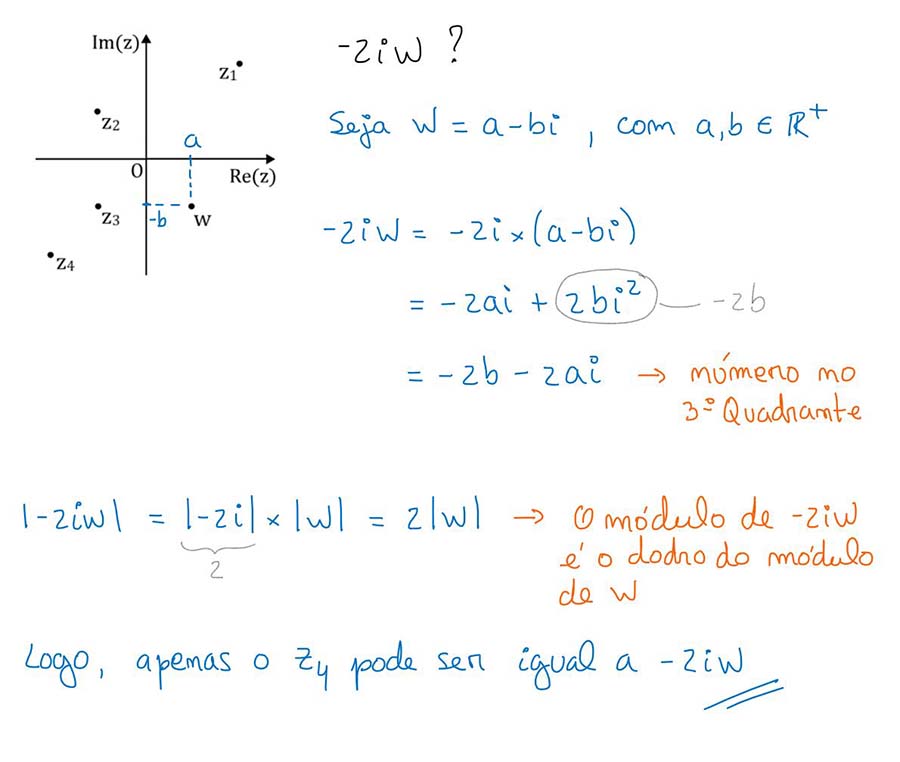 Im(z)
z1
z2
a
O
Re(z)
z3
-b
w
z4
-2iw ?
Seja w = a-bi , com a,b ∈ ℝ⁺
-2iw = -2i×(a-bi)
= -2ai + 2bi² — -2b
= -2b - 2ai → número no
3º Quadrante
|-2iw| = |-2i| × |w| = 2|w| → O módulo de -2iw
2
é o dobro do módulo
de w
Logo, apenas o z4 pode ser igual a -2iw